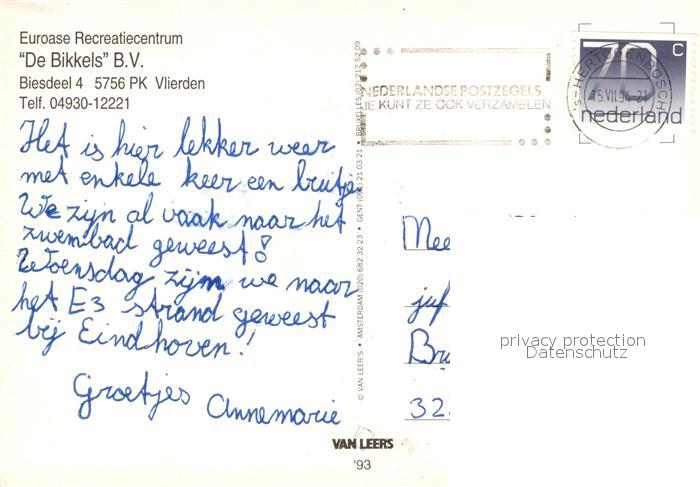 Euroase Recreatiecentrum
"De Bikkels" B.V.
Biesdeel 4 5756 PK Vlierden
Telf. 04930-12221
Het is hier lekker weer
met enkele keer een buitje
We zijn al vaak naar het
zwembad geweest!
Woensdag zijn we naar
het E3 strand geweest
bij Eindhoven!
Groetjes Annemarie
© VAN LEER'S • AMSTERDAM (020) 682 32 23 • GENT (091) 21 03 21 • BRUXELLES (02) 217 52 09
NEDERLANDSE POSTZEGELS
JE KUNT ZE OOK VERZAMELEN
's-HERTOGENBOSCH
15.VII.94-21
70 c
nederland
Mee
juf
Bru
32
privacy protection
Datenschutz
VAN LEERS
'93